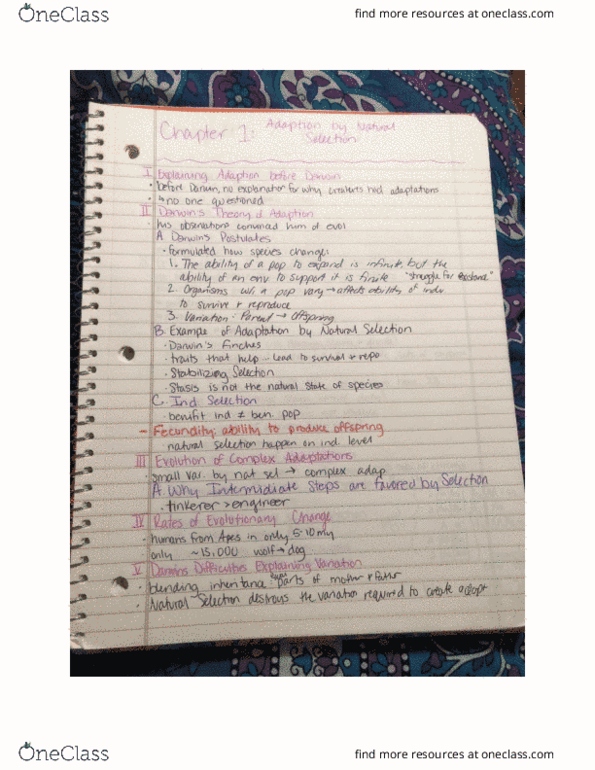 OneClass
find more resources at oneclass.com
Chapter 1: Adaption by Natural
Selection
I Explaining Adaption before Darwin
• before Darwin, no explanation for why creatures had adaptations
• ↳ no one questioned
II Darwin's Theory of Adaption
his observations convinced him of evol
A. Darwin's Postulates
• formulated how species change:
1. The ability of a pop to expand is infinite, but the
ability of an env to support it is finite "struggle for existance"
2. Organisms w/i a pop vary → affects ability of indv
to survive + reproduce
3. Variation: Parent → Offspring
B. Example of Adaptation by Natural Selection
• Darwin's Finches
• traits that help - lead to survival + repo
• Stabilizing Selection
• Stasis is not the natural state of species
C. Ind Selection
• benefit ind ≠ ben. pop
- Fecundity: ability to produce offspring
natural selection happen on ind. level
III Evolution of Complex Adaptations
• small var. by nat sel → complex adap
A. Why Intermediate Steps are favored by Selection
• tinkerer > engineer
IV Rates of Evolutionary Change
• humans from Apes in only 5-10 my
• only ~15,000 wolf → dog
V Darwins Difficulties Explaining Variation
• blending inheritance parts of mother + father
• Natural Selection destroys the variation required to create adapt
OneClass
find more resources at oneclass.com